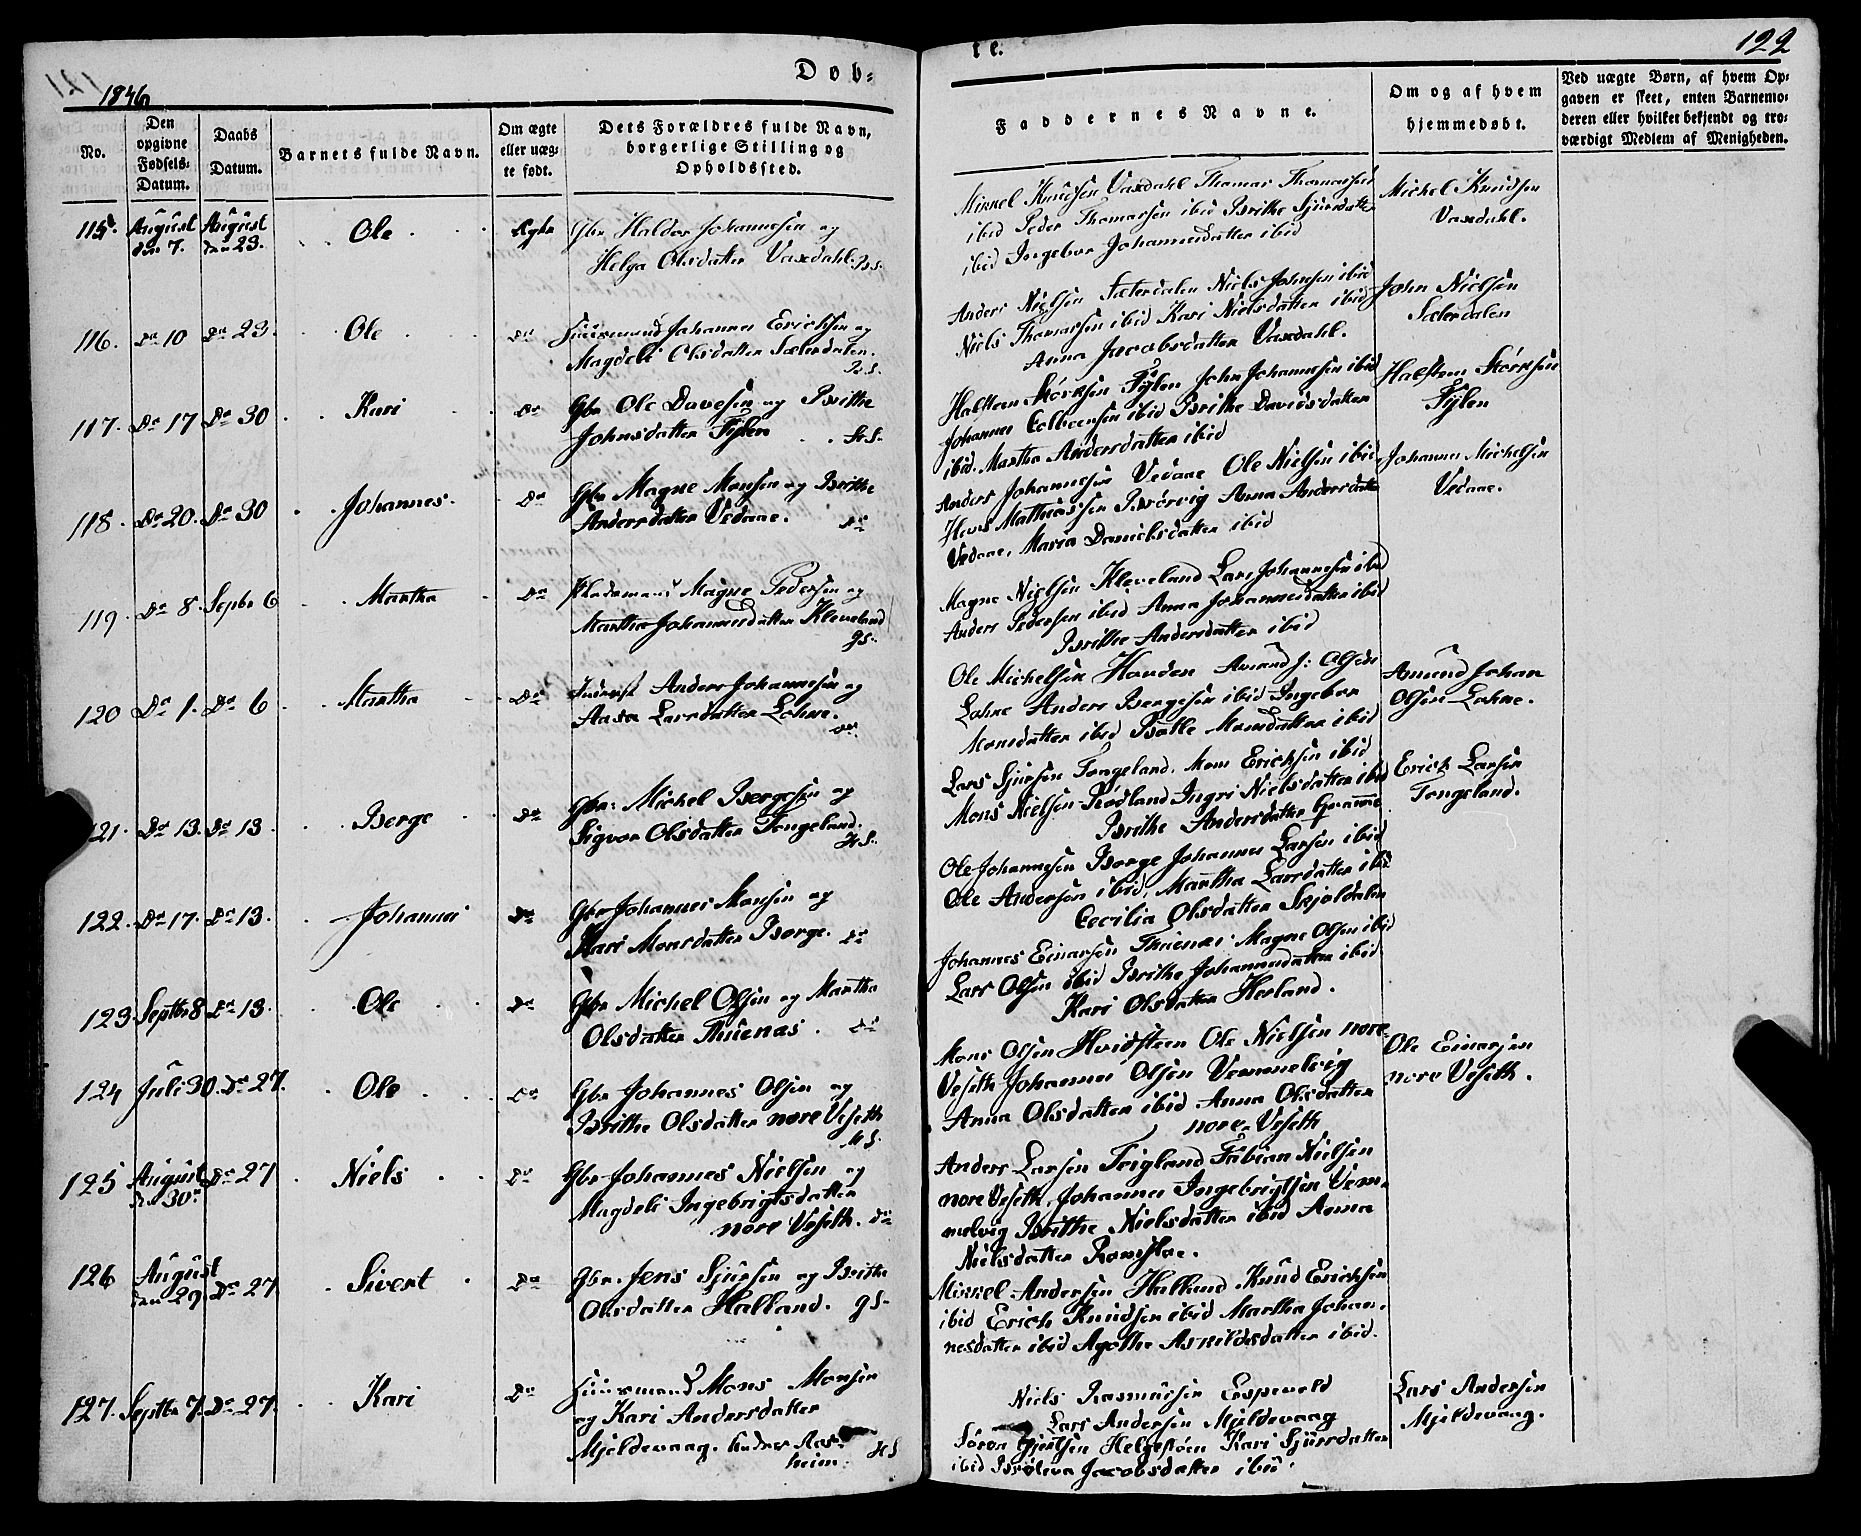 1846
Døb=
No.
Den opgivne Fødsels-Datum.
Daabs Datum.
Barnets fulde Navn.
Om ægte eller uægte født.
Dets Forældres fulde Navn, borgerlige Stilling og Opholdssted.
115. August den 7. August den 23. Ole Ægte Gbr Haldor Johannesen og
Helga Olsdatter Vaxdahl. B.S.
116. Do 10 Do 23. Ole Do Huusmand Johannes Ericksen og
Magdeli Olsdatter Sæterdalen.
B.S.
117. Do 17 Do 30 Kari Do Gbr Ole Davesen og Brithe
Johnsdatter Fylen
118. Do 20. Do 30 Johannes. Do Gbr Magne Monsen og Brithe
Andersdatter Vedaae. Do
119. Do 8. Septbr 6 Martha Do Magne Pedersen og
Martha Johannesdatter Kleveland
gS.
120 Do 1. Do 6 Martha Do Anders Johannesen og
Aasa Larsdatter Lohne.
Do
121. Do 13. Do 13 Berge Do Gbr. Michel Bergesen og
Sigvor Olsdatter Tongeland.
HS.
122. Do 17. Do 13. Johannes Do Gbr Johannes Monsen og
Kari Monsdatter Borge. Do
123. Septbr 8 Do 13. Ole Do Gbr Michel Olsen og Martha
Olsdatter Thuenæs. Do
124 Juli 30. Do 27. Ole Do Gbr Johannes Olsen og
Brithe Olsdatter nore Veseth
MS.
125 August den 30te Do 27 Niels Do Gbr Johannes Nielsen og
Magdeli Ingebrigtsdatter
nore Veseth. Do
126 August den 29. Do 27 Sivert Do Gbr. Jens Sjursen og Brithe
Olsdatter Halland. gS.
127. Septbr 7. Do 27. Kari Do Huusmand Mons Monsen
og Kari Andersdatter
Mjeldevaag. under Aas-
heim. HS
te.
122
Faddernes Navne.
Om og af hvem hjemmedøbt.
Ved uægte Børn, af hvem Op-
gaven er skeet, enten Barnemo-
deren eller hvilket bekjendt og tro-
værdigt Medlem af Menigheden.
Mikkel Knudsen Vaxdahl Thomas Thomassen
ibid Peder Thomassen ibid Brithe Sjursdatter
ibid Ingebor Johannesdatter ibid
Michel Knudsen
Vaxdahl.
Anders Nielsen Sæterdalen Niels Johnsen ibid
Niels Thomassen ibid Kari Nielsdatter ibid
Anna Jacobsdatter Vaxdahl.
John Nielsen
Sæterdalen
Halsteen Størksen Fylen John Johannesen ibid
Johannes Colbeensen ibid Brithe Davidsdatter
ibid. Martha Andersdatter ibid
Halsteen Størksen
Fylen
Anders Johannesen Vedaae Ole Nielsen ibid
Hans Mathiassen Børvig Anna Andersdatter
Vedaae, Maria Danielsdatter ibid
Johannes Michelsen
Vedaae.
Magne Nielsen Kleveland Lars Johannesen ibid
Anders Pedersen ibid Anna Johannesdatter ibid
Brithe Andersdatter ibid
Ole Michelsen Amund J: Olsen
Lohne Anders Bergesen ibid Ingebor
Monsdatter ibid Monsdatter ibid
Amund Johan
Olsen Lohne.
Lars Sjursen Tongeland. Mons Ericksen ibid
Mons Nielsen Rødland Ingri Nielsdatter ibid
Brithe Andersdatter
Erick Larsen
Tongeland.
Ole Johannesen Borge Johannes Larsen ibid
Ole Andersen ibid, Martha Larsdatter ibid
Cecilia Olsdatter Skjoldalen
Johannes Einarsen Thuenæs Magne Olsen ibid
Lars Olsen ibid Brithe Johannesdatter ibid
Kari Olsdatter Herland.
Mons Olsen Hvidsteen Ole Nielsen nore
Veseth Johannes Olsen Vemmelvig
Anna Olsdatter ibid Anna Olsdatter
nore Veseth
Ole Einarsen
nore Veseth.
Anders Larsen Teigland Fabian Nielsen
nore Veseth, Johannes Ingebrigtsen Vem-
melvig Brithe Nielsdatter ibid Anna
Nielsdatter
Mikkel Andersen Halland Knud Ericksen
ibid Erich Knudsen ibid Martha Johan-
nesdatter ibid Agothe Asnildsdatter ibid.
Niels Rasmusen Espevold
Lars Andersen Mjeldevaag
Søren Gjertsen Helgestøen Kari Sjursdatter
ibid Jacobsdatter ibid.
Lars Andersen
Mjeldevaag.